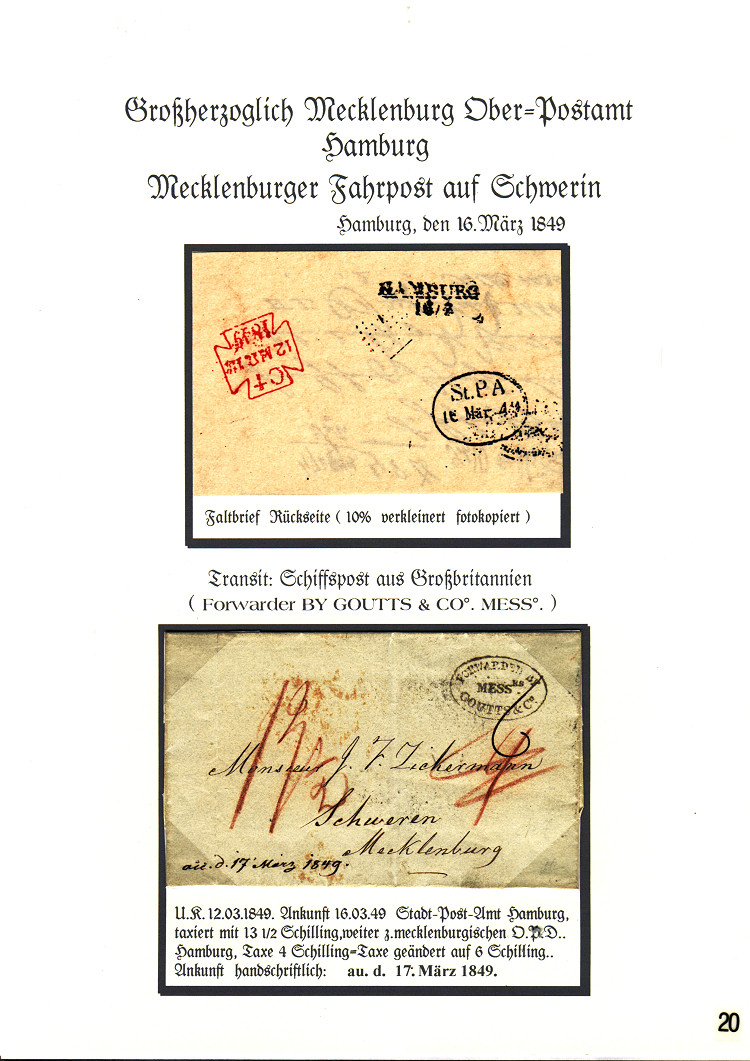 Großherzoglich Mecklenburg Ober=Postamt
Hamburg
Mecklenburger Fahrpost auf Schwerin
Hamburg, den 16.März 1849
HAMBURG
16/3
1849
12 MR 12
C+
St.P.A.
16 Mär. 49
Faltbrief Rückseite ( 10% verkleinert fotokopiert )
Transit: Schiffspost aus Großbritannien
( Forwarder BY GOUTTS & CO°. MESS°. )
FORWARDED BY
MESSRS
COUTTS & Co
Monsieur J. F. Zickermann
Schweren
Mecklenburg
au. d. 17 März 1849.
U.K. 12.03.1849. Ankunft 16.03.49 Stadt-Post-Amt Hamburg,
taxiert mit 13 1/2 Schilling,weiter z.mecklenburgischen O.P.D..
Hamburg, Taxe 4 Schilling=Taxe geändert auf 6 Schilling..
Ankunft handschriftlich: au. d. 17. März 1849.
20